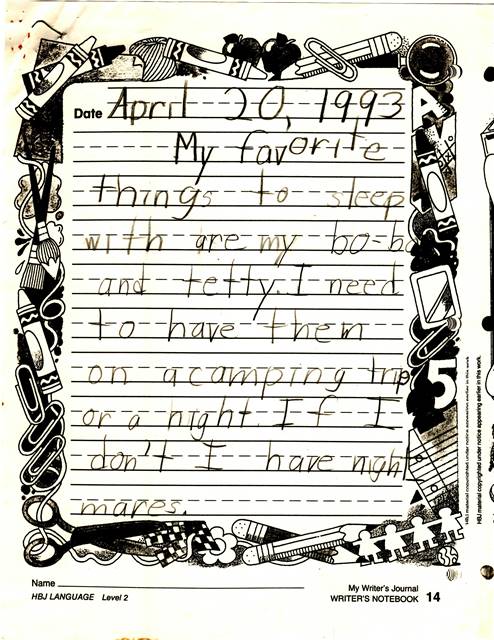 Date April 20, 1993
My favorite
things to sleep
with are my bo-bo
and tetty. I need
to have them
on a camping trip
or a night. If I
don't I have night
mares.
Name
HBJ LANGUAGE Level 2
My Writer's Journal
WRITER'S NOTEBOOK 14
HBJ material copyrighted under notice appearing earlier in this work.